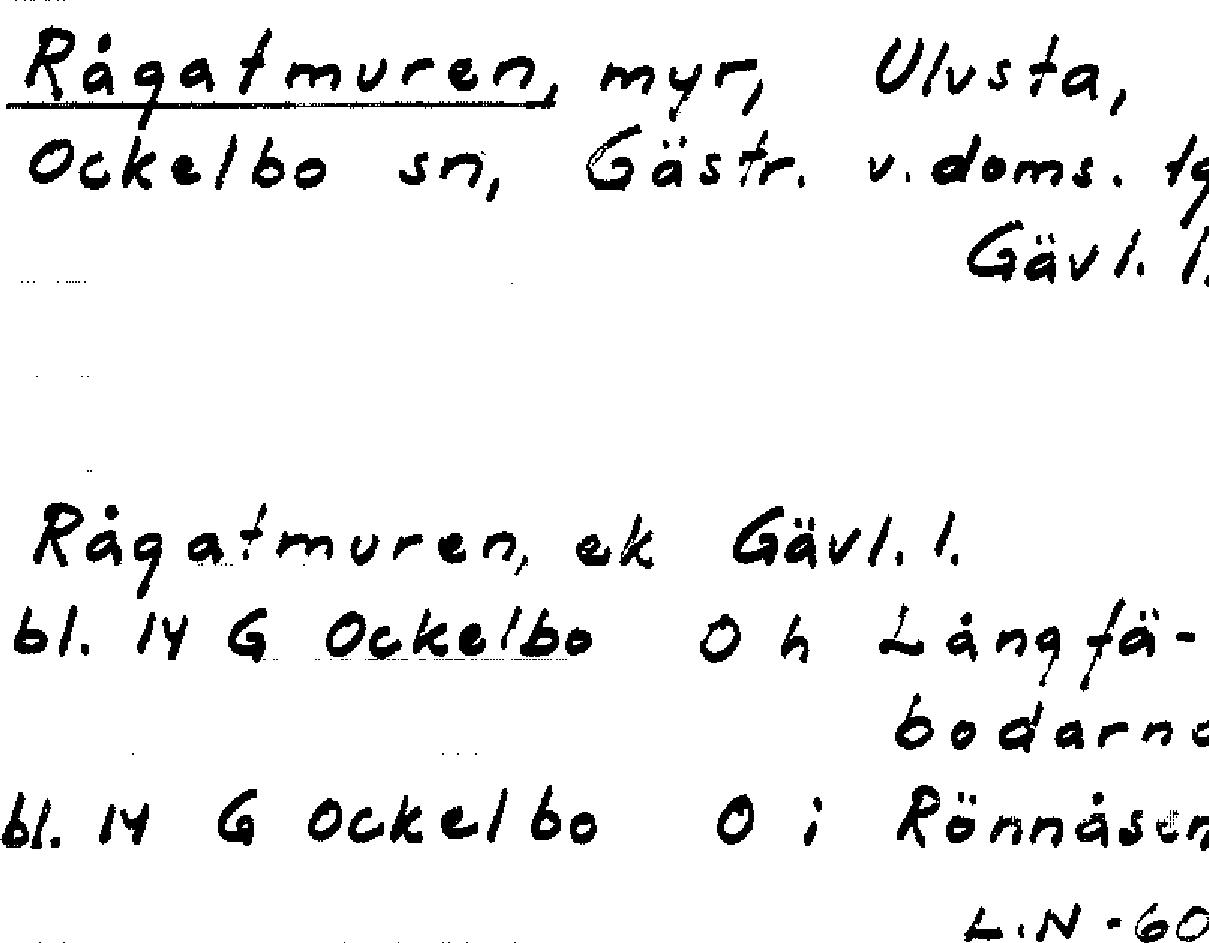 Rågatmuren, myr, Ulvsta,
Ockelbo sn, Gästr. v. doms. tg
Gävl. l.
Rågatmuren, ek Gävl. l.
bl. 14 G Ockelbo 0 h Långfä-
bodarna
bl. 14 G Ockelbo 0 i Rönnåsen
L.N -60